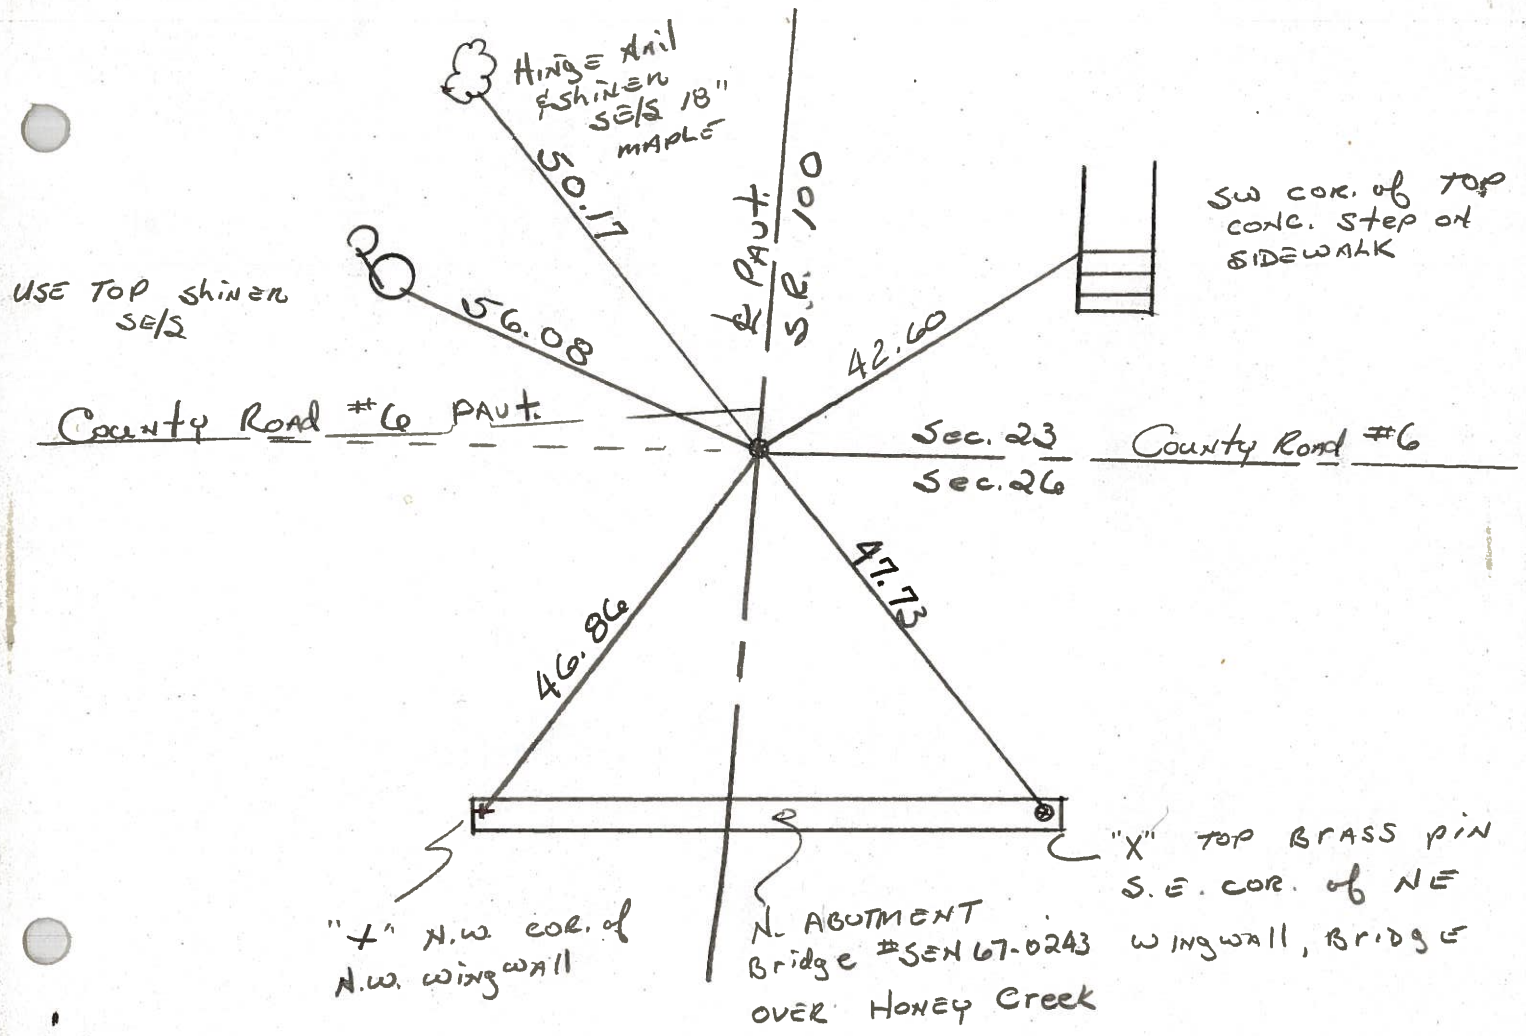 HINGE NAIL
& SHINER
SE/S 18"
MAPLE
50.17
℄ PAV'T.
S.R. 100
SW COR. of TOP
CONC. STEP ON
SIDEWALK
USE TOP SHINER
SE/S
56.08
42.60
County Road #6 PAV'T.
Sec. 23
Sec. 26
County Road #6
47.73
46.86
"X" TOP BRASS PIN
S.E. COR. of NE
WINGWALL, BRIDGE
"+" N.W. COR. of
N.W. WINGWALL
N. ABUTMENT
Bridge #SEN 67-0243
OVER HONEY Creek